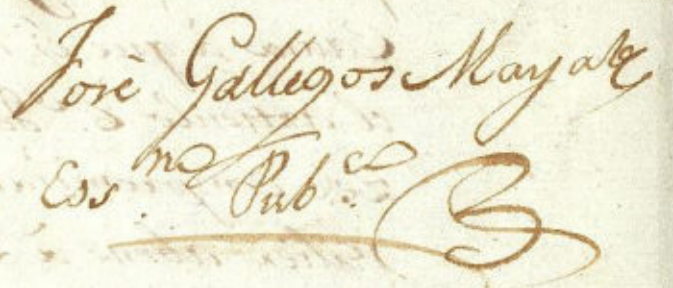 José Gallegos Mayale
Ess.no Pub.co